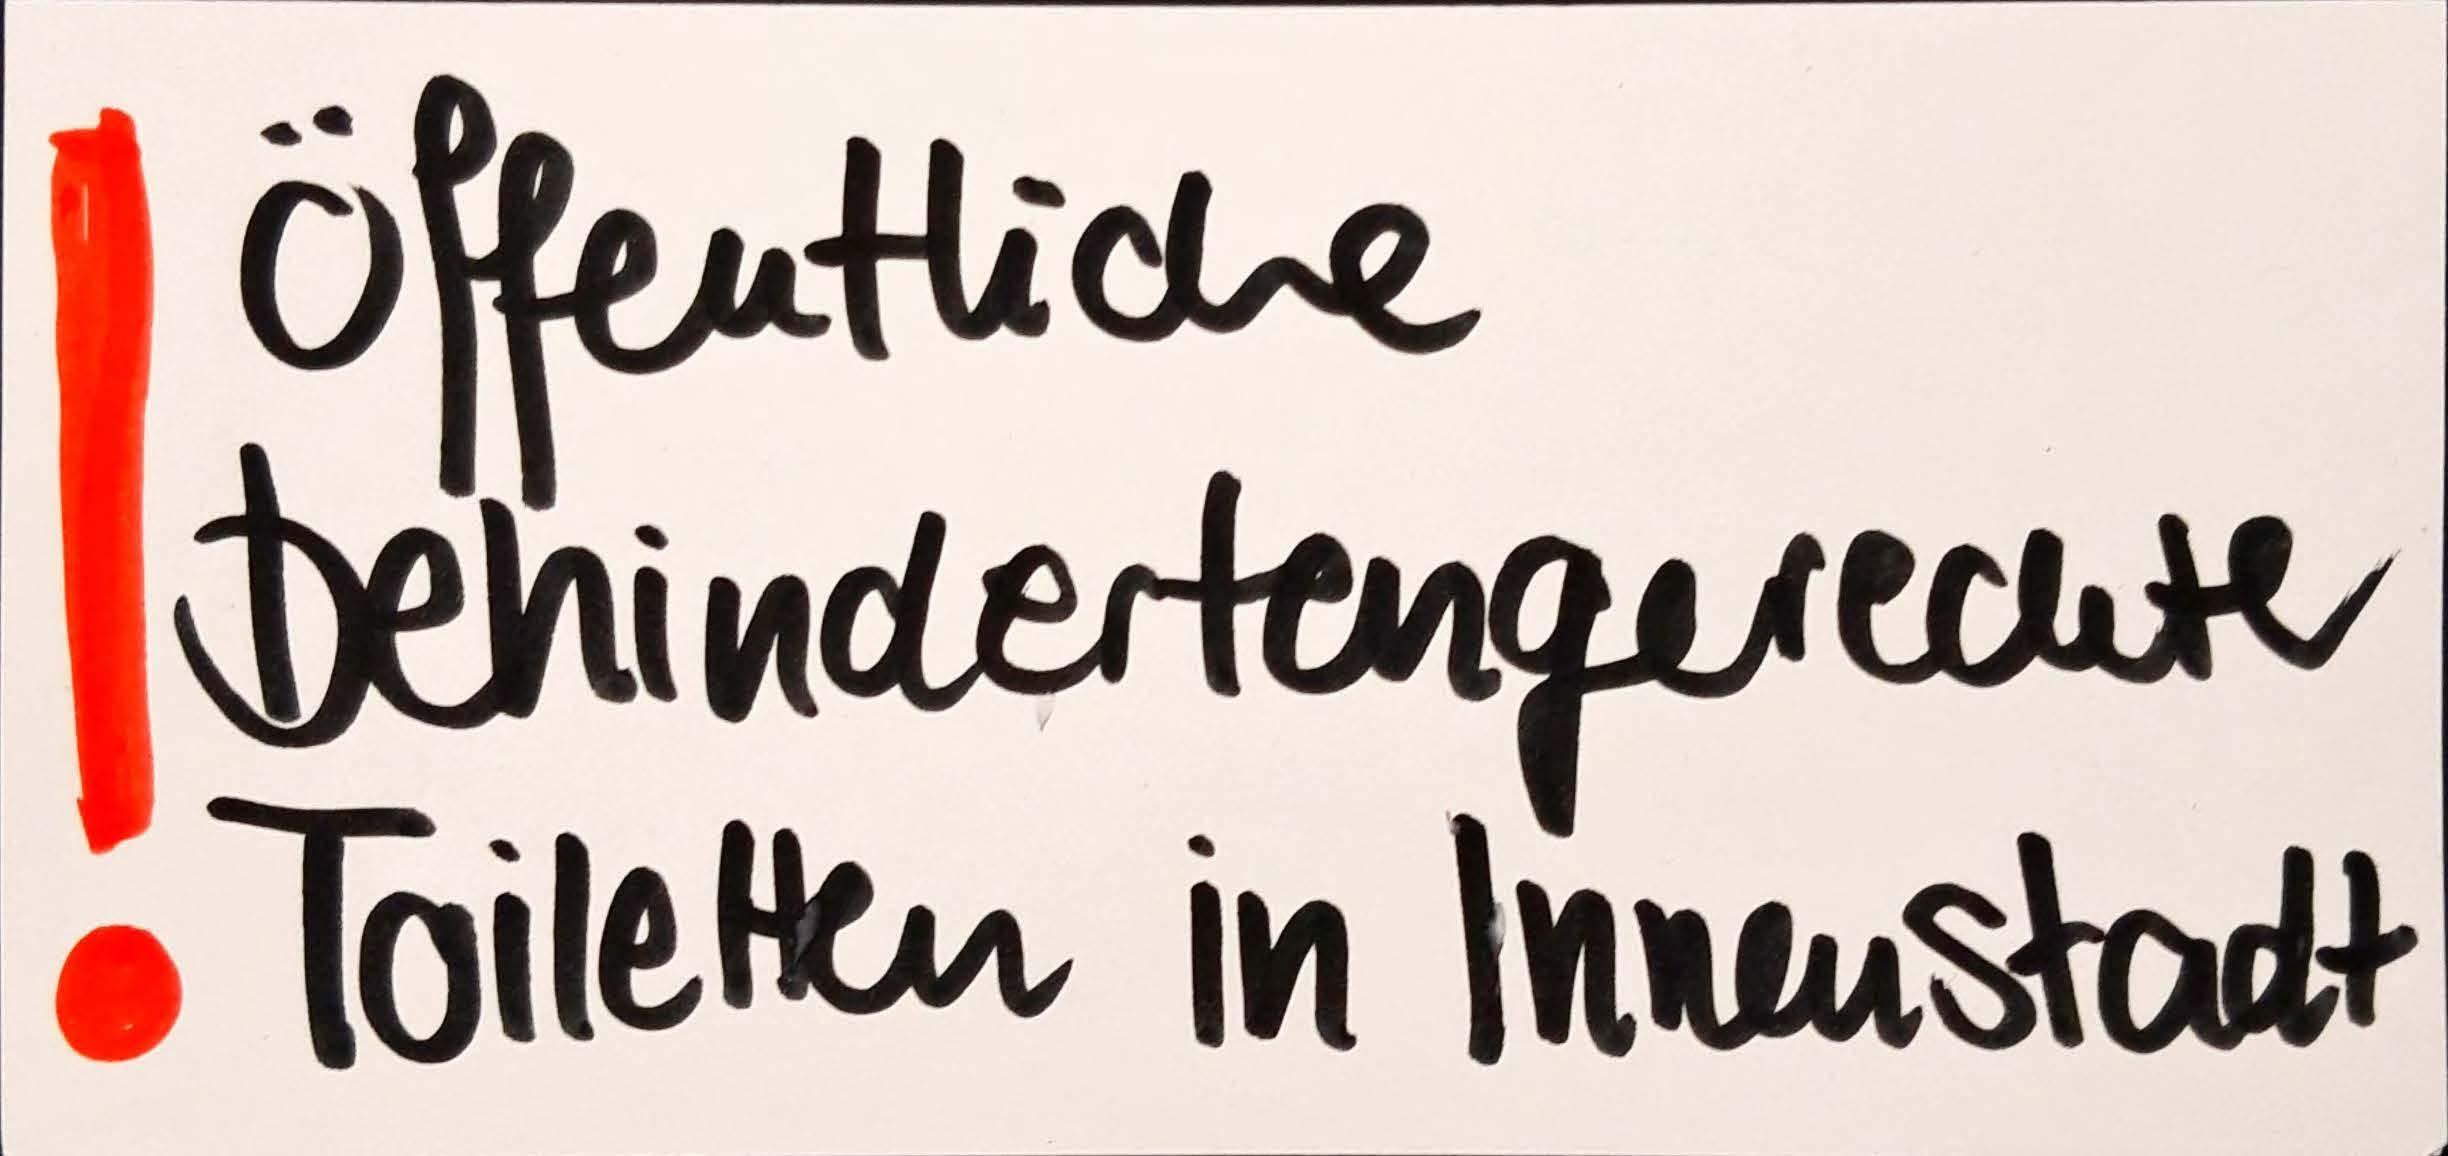 ! Öffentliche
behindertengerechte
Toiletten in Innenstadt